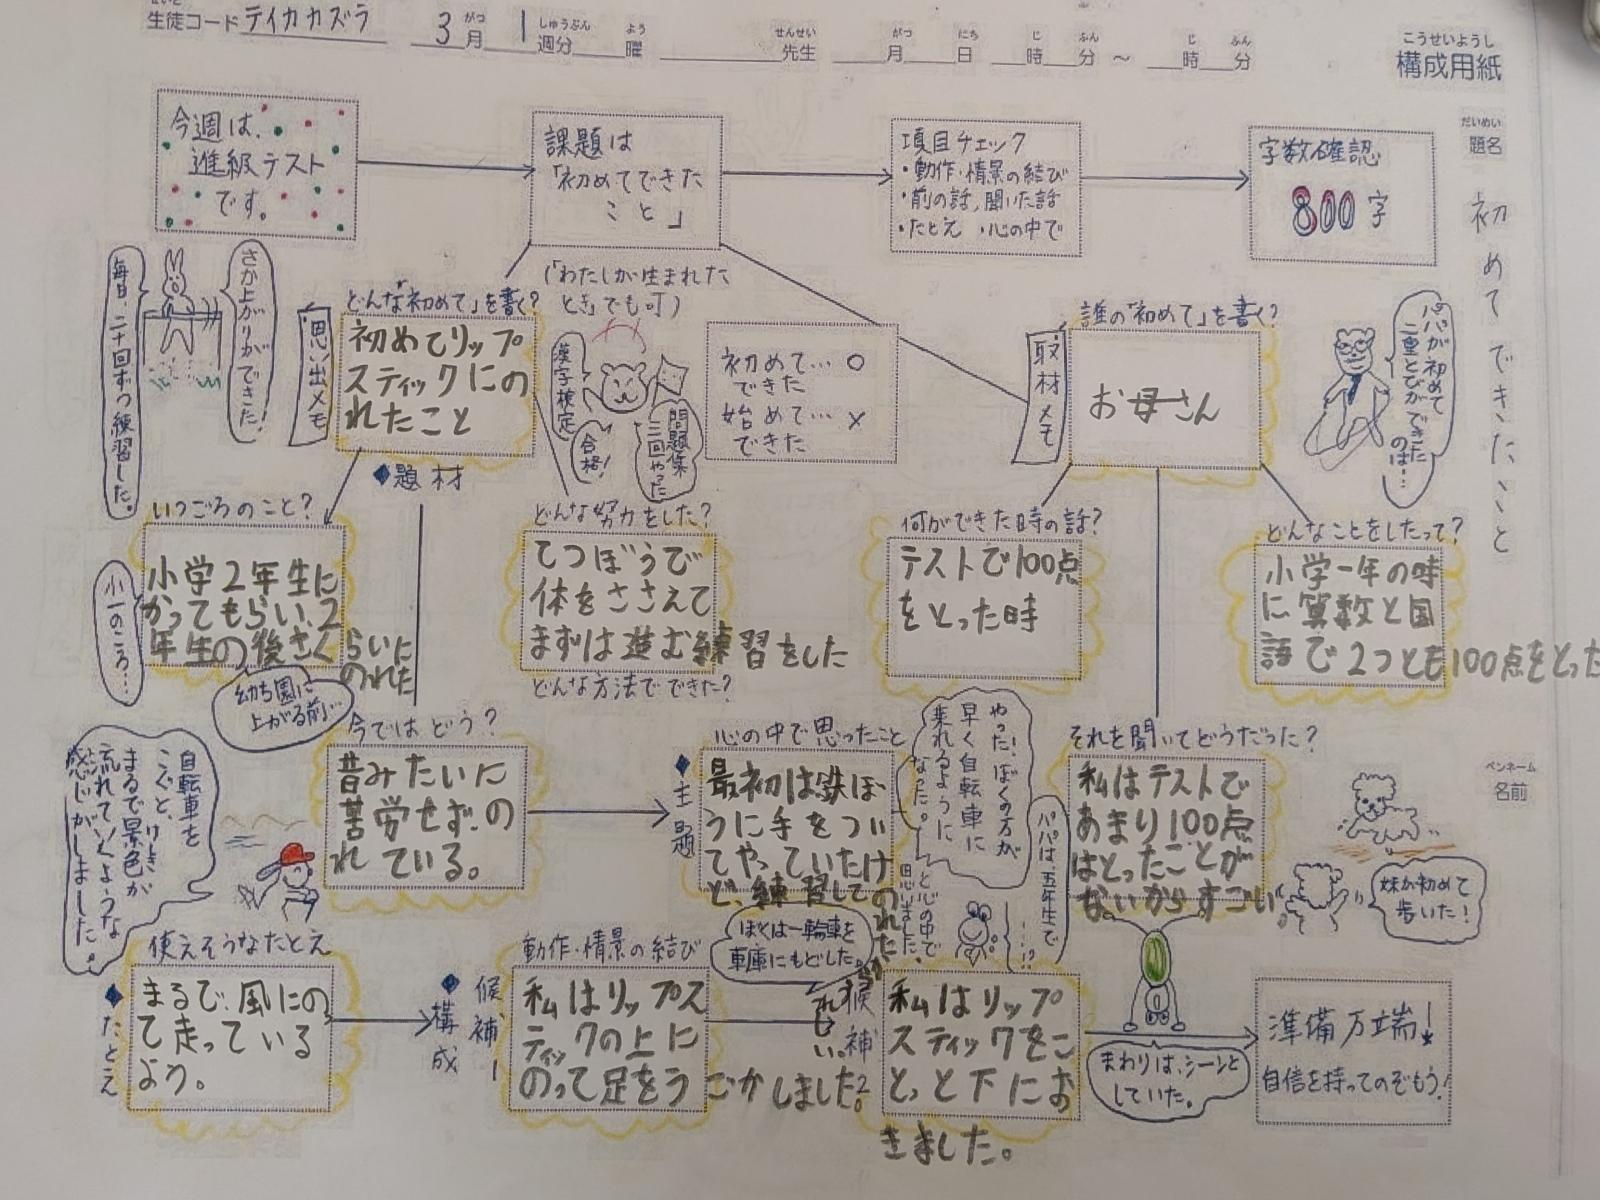 せいと
生徒コード テイカカズラ
3月 1週分 曜 先生 月 日 時 分 ～ 時 分
がつ しゅうぶん よう せんせい がつ にち じ ふん じ ふん
こうせいようし
構成用紙
だいめい
題名
初めてできたこと
ペンネーム
名前
今週は、
進級テスト
です。
課題は
「初めてできた
こと」
項目チェック
・動作・情景の結び
・前の話,聞いた話
・たとえ ・心の中で
字数確認
800字
(「わたしが生まれた
とき」でも可)
毎日、二十回ずつ練習した。
さか上がりができた!
思い出メモ
どんな「初めて」を書く?
初めてリップ
スティックにの
れたこと
◆題材
漢字検定
合格!
問題集
三回やった
初めて…○
できた
始めて…×
できた
取材メモ
誰の「初めて」を書く?
お母さん
パパが初めて
二重とびができた
のは…
いつごろのこと?
小学2年生に
かってもらい、2
年生の後きくらいに
のれた
小一のころ…
幼ち園に
上がる前…
どんな努力をした?
てつぼうで
体をささえて
まずは進む練習をした
どんな方法でできた?
何ができた時の話?
テストで100点
をとった時
どんなことをしたって?
小学一年の時
に算数と国
語で2つとも100点をとった
今ではどう?
昔みたいに
苦労せず、の
れている。
自転車を
こぐと、
まるで景色が
けしき
流れていくような
感じがしました。
◆主題
心の中で思ったこと
最初は鉄ぼ
うに手をつい
てやっていたけ
ど、練習して
のれたから
うれしい。
やった!ぼくの方が
早く自転車に
乗れるように
なった。
と心の中で
思いました。
パパは、五年生で
…!?
それを聞いてどうだった?
私はテストで
あまり100点
はとったことが
ないからすごい
妹が初めて
歩いた!
使えそうなたとえ
◆たとえ
まるで、風にの
て走っている
よう。
◆構成
候補1
動作・情景の結び
私はリップス
ティックの上に
のって足をうごかしました。
ぼくは一輪車を
車庫にもどした。
候補2
私はリップ
スティックをこ
とっと下にお
きました。
まわりは、シーンと
していた。
準備万端!
自信を持ってのぞもう!